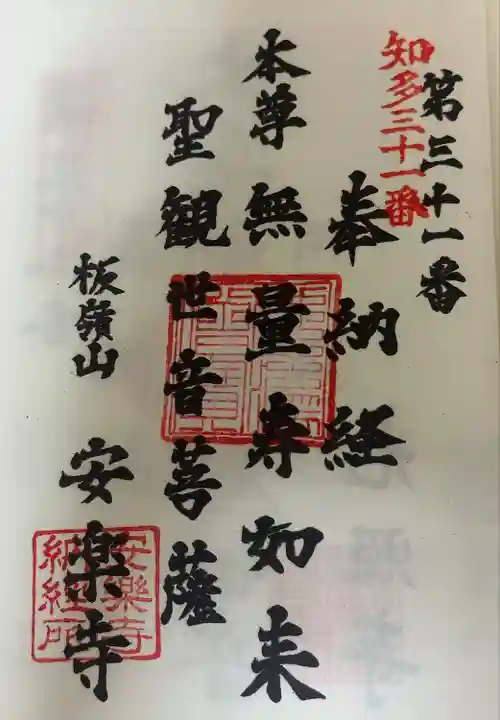 第三十一番
知多三十一番
奉納経
本尊無量寿如来
聖観世音菩薩
板嶺山
安楽寺
安樂寺
納経所